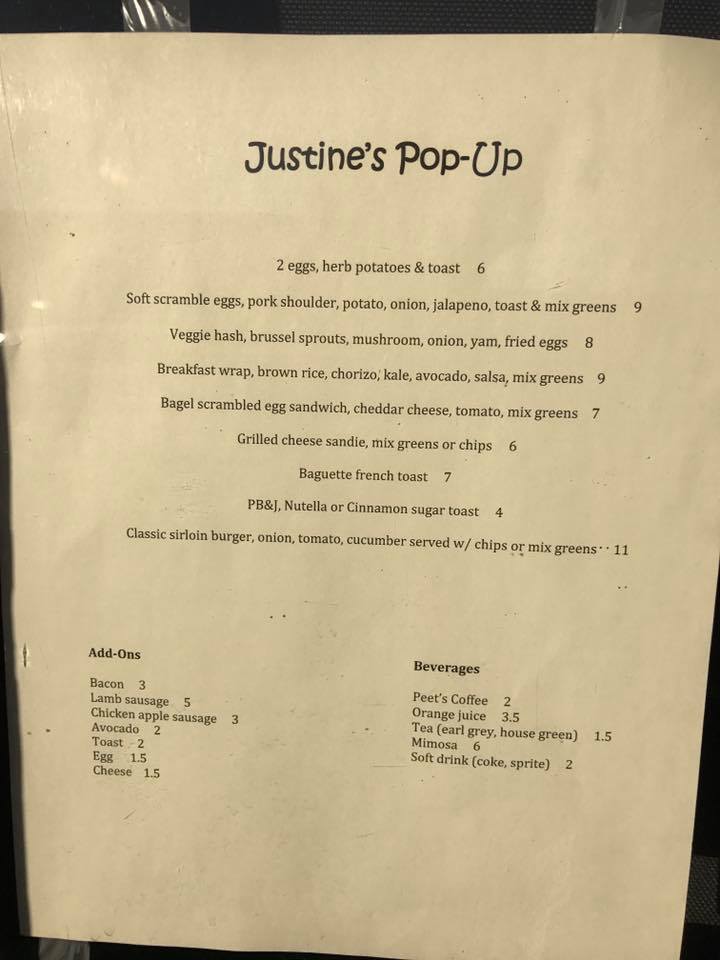 Justine's Pop-Up
2 eggs, herb potatoes & toast 6
Soft scramble eggs, pork shoulder, potato, onion, jalapeno, toast & mix greens 9
Veggie hash, brussel sprouts, mushroom, onion, yam, fried eggs 8
Breakfast wrap, brown rice, chorizo, kale, avocado, salsa, mix greens 9
Bagel scrambled egg sandwich, cheddar cheese, tomato, mix greens 7
Grilled cheese sandie, mix greens or chips 6
Baguette french toast 7
PB&J, Nutella or Cinnamon sugar toast 4
Classic sirloin burger, onion, tomato, cucumber served w/ chips or mix greens 11
Add-Ons
Bacon 3
Lamb sausage 5
Chicken apple sausage 3
Avocado 2
Toast 2
Egg 1.5
Cheese 1.5
Beverages
Peet's Coffee 2
Orange juice 3.5
Tea (earl grey, house green) 1.5
Mimosa 6
Soft drink (coke, sprite) 2